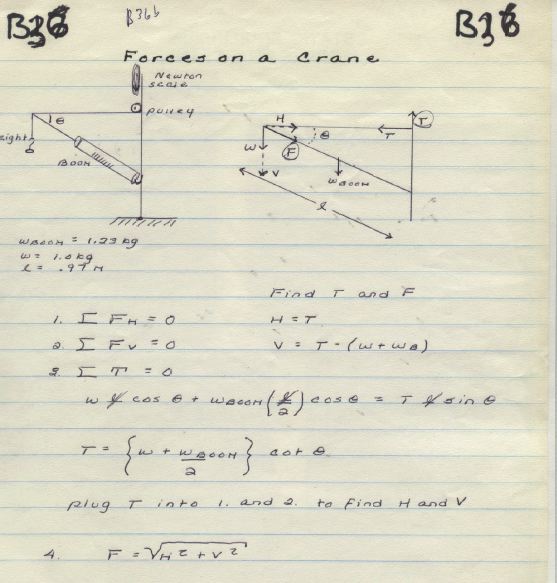 B36 B36b B36
Forces on a Crane
Newton
scale
pulley
θ
eight
Boom
H
T
T
θ
W
F
V
W BOOM
l
W BOOM = 1.23 kg
W = 1.0 kg
l = .97 M
Find T and F
1. Σ F H = 0 H = T
2. Σ F V = 0 V = T - (W + W B)
3. Σ T = 0
W l cos θ + W BOOM (l/2) cos θ = T l sin θ
T = {W + W BOOM / 2} cot θ
plug T into 1. and 2. to find H and V
4. F = √H² + V²